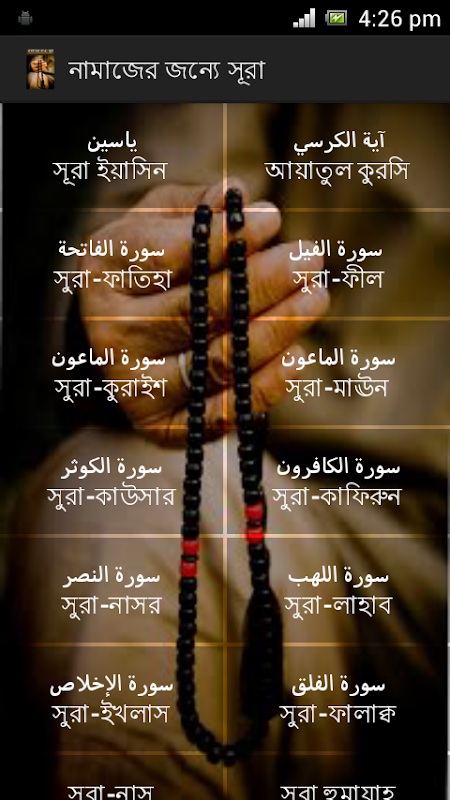 4:26 pm
নামাজের জন্যে সূরা
ياسين
সূরা ইয়াসিন
آية الكرسي
আয়াতুল কুরসি
سورة الفاتحة
সুরা-ফাতিহা
سورة الفيل
সুরা-ফীল
سورة الماعون
সুরা-কুরাইশ
سورة الماعون
সুরা-মাঊন
سورة الكوثر
সুরা-কাউসার
سورة الكافرون
সুরা-কাফিরুন
سورة النصر
সুরা-নাসর
سورة اللهب
সুরা-লাহাব
سورة الإخلاص
সুরা-ইখলাস
سورة الفلق
সুরা-ফালাক্ব
সুরা-নাস
সুরা হুমাযাহ